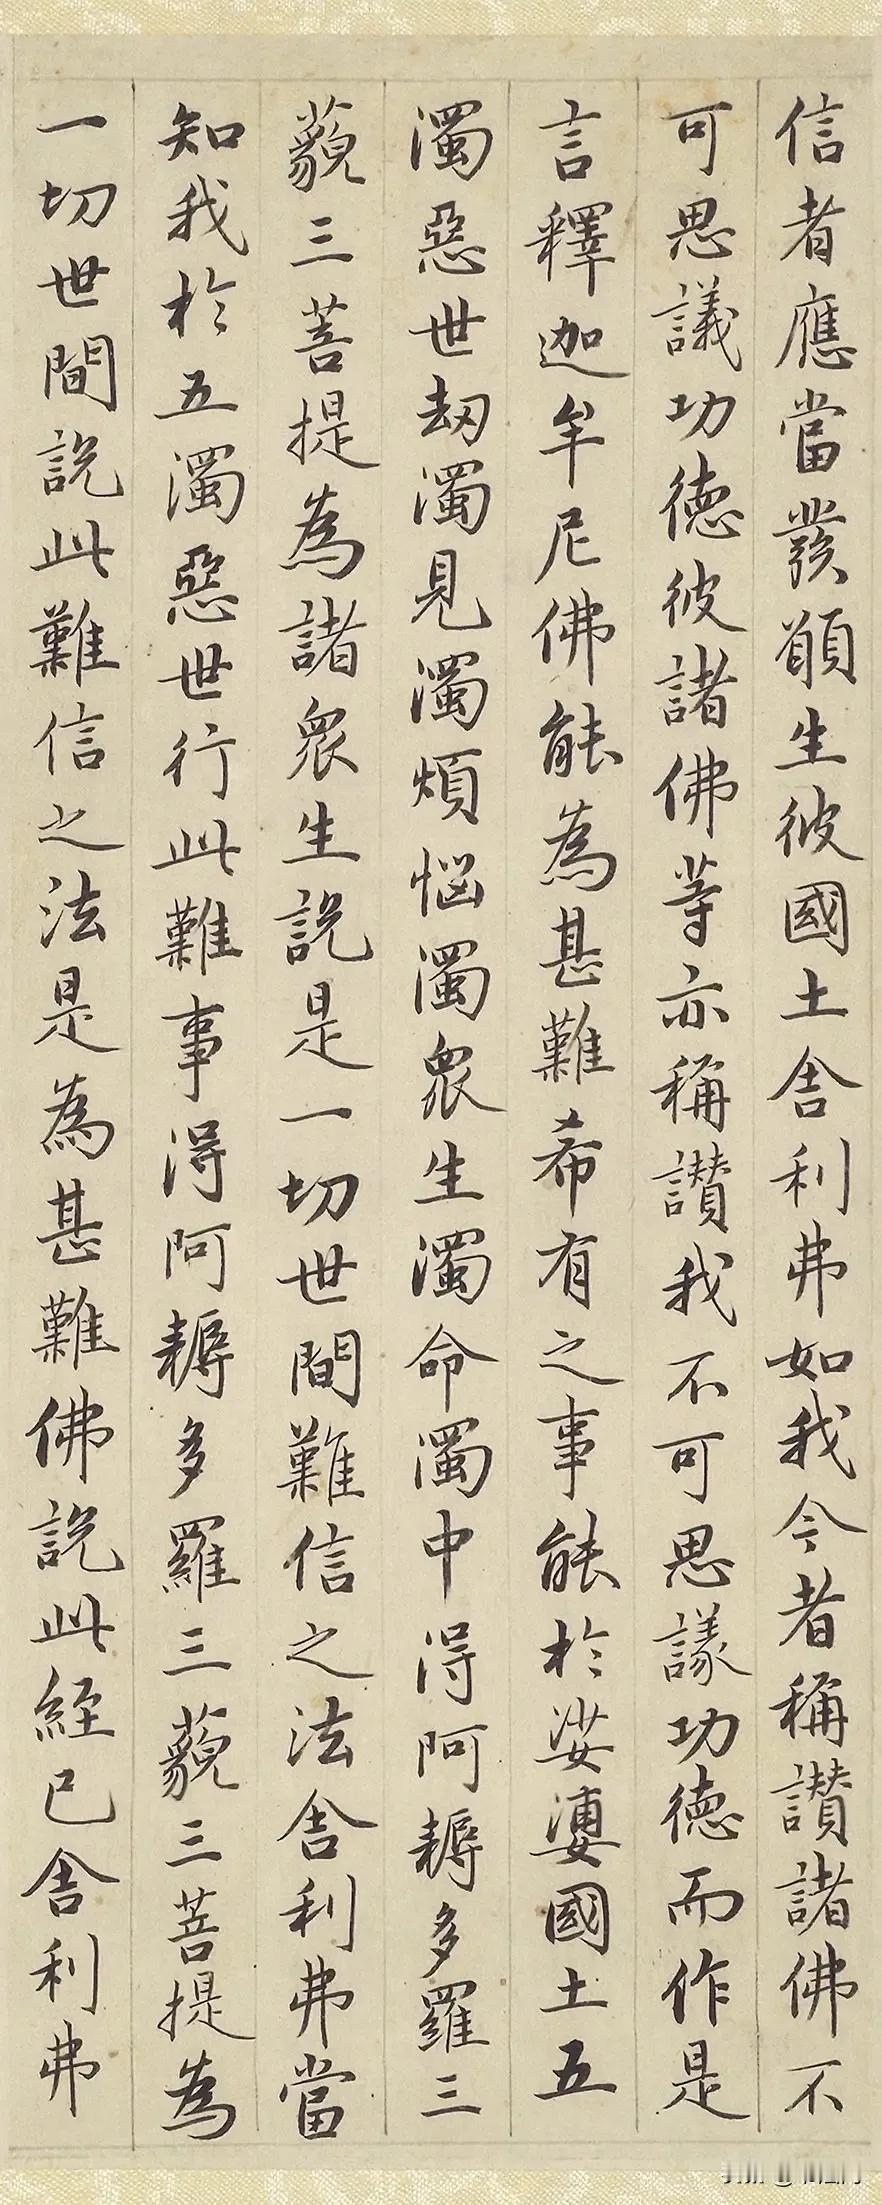 信者應當發願生彼國土舍利弗如我今者稱讚諸佛不
可思議功德彼諸佛等亦稱讚我不可思議功德而作是
言釋迦牟尼佛能為甚難希有之事能於娑婆國土五
濁惡世劫濁見濁煩惱濁眾生濁命濁中得阿耨多羅三
藐三菩提為諸眾生說是一切世間難信之法舍利弗當
知我於五濁惡世行此難事得阿耨多羅三藐三菩提為
一切世間說此難信之法是為甚難佛說此經已舍利弗